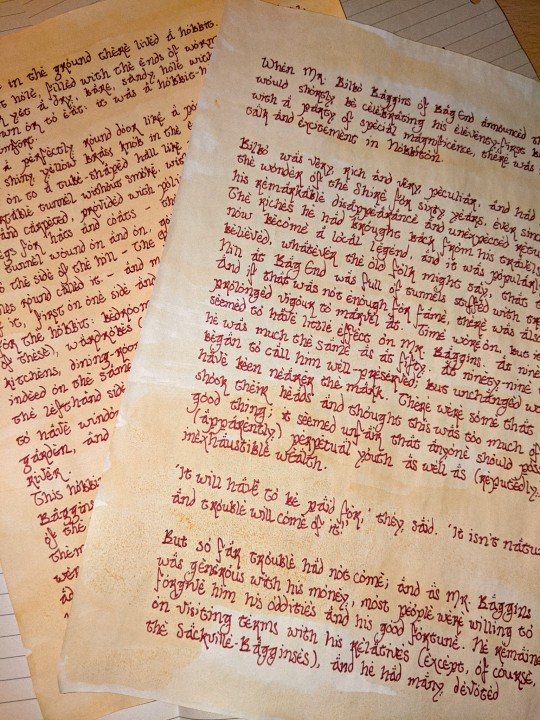 in the ground there lived a hobbit.
hole, filled with the ends of worm
yet a dry, bare, sandy hole with
down on or to eat: it was a hobbit-h
comfort.
a perfectly round door like a po
shiny yellow brass knob in the e
on to a tube-shaped hall like
tunnel without smoke, wit
and carpeted, provided with poli
pegs for hats and coats – th
tunnel wound on and on, go
to the side of the hill – the
miles round called it – and m
of it, first on one side and
for the hobbit: bedroom
of these), wardrobes
kitchens, dining-roo
indeed on the same
the lefthand side
to have window
garden, and
river.
This hobbit
Baggins
of the
them
wer
When Mr. Bilbo Baggins of Bag End announced th
would shortly be celebrating his eleventy-first bi
with a party of special magnificence, there was
talk and excitement in Hobbiton.
Bilbo was very rich and very peculiar, and had
the wonder of the Shire for sixty years, ever sinc
his remarkable disappearance and unexpected retu
The riches he had brought back from his travels
now become a local legend, and it was popularl
believed, whatever the old folk might say, that t
hill at Bag End was full of tunnels stuffed with tr
And if that was not enough for fame, there was also
prolonged vigour to marvel at. Time wore on, but it
seemed to have little effect on Mr. Baggins. At nine
he was much the same as at fifty. At ninety-nine
began to call him well-preserved; but unchanged wo
have been nearer the mark. There were some that
shook their heads and thought this was too much of
good thing; it seemed unfair that anyone should poss
(apparently) perpetual youth as well as (reputedly)
inexhaustible wealth.
'It will have to be paid for,' they said. 'It isn't natu
and trouble will come of it!'
But so far trouble had not come; and as Mr. Baggins
was generous with his money, most people were willing to
forgive him his oddities and his good fortune. He remaine
on visiting terms with his relatives (except, of course,
the Sackville-Bagginses), and he had many devoted